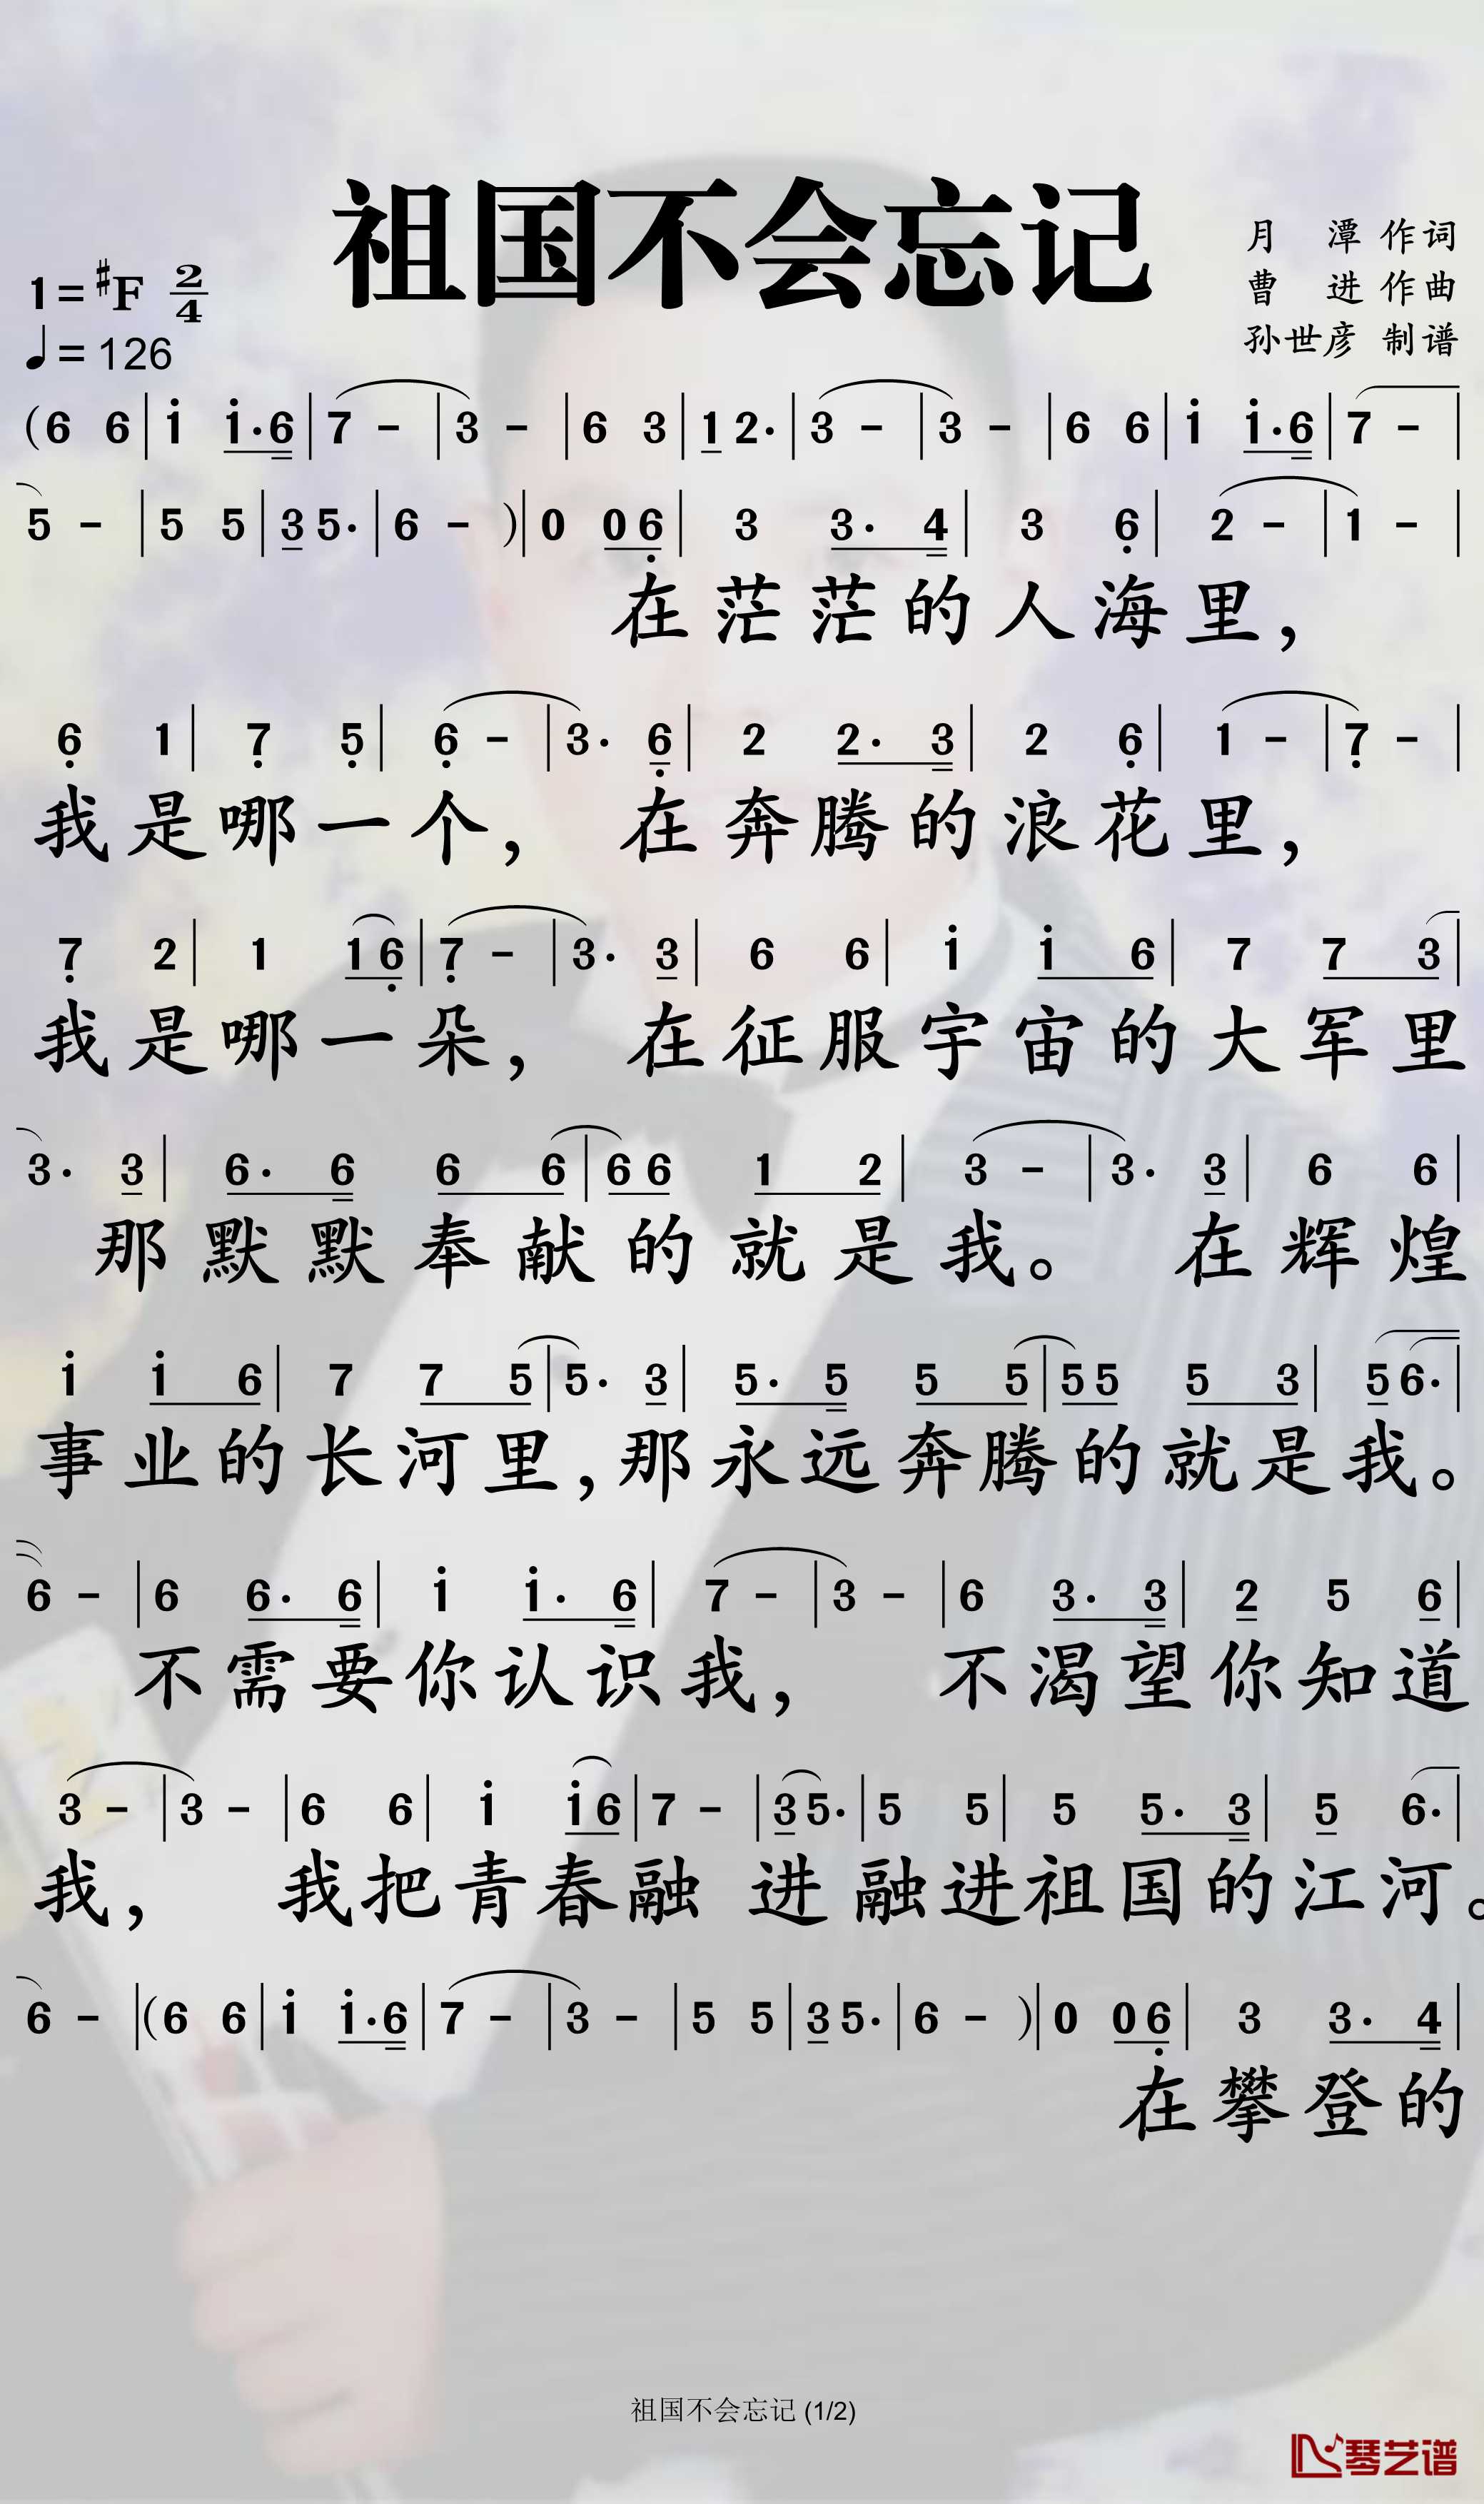 祖国不会忘记
月 潭 作词
曹 进 作曲
孙世彦 制谱
1=#F 2/4
♩=126
(6 6|i i·6|7 -|3 -|6 3|1 2·|3 -|3 -|6 6|i i·6|7 -|
5 -|5 5|3 5·|6 -)|0 0 6̣|3 3· 4|3 6̣|2 -|1 -|
在茫茫的人海里，
6̣ 1|7̣ 5̣|6̣ -|3· 6̣|2 2· 3|2 6̣|1 -|7̣ -|
我是哪一个， 在奔腾的浪花里，
7̣ 2|1 1 6̣|7̣ -|3· 3|6 6|i i 6|7 7 3|
我是哪一朵， 在征服宇宙的大军里
3· 3|6· 6 6 6|6 6 1 2|3 -|3· 3|6 6|
那默默奉献的就是我。 在辉煌
i i 6|7 7 5|5· 3|5· 5 5 5|5 5 5 3|5 6·|
事业的长河里，那永远奔腾的就是我。
6 -|6 6· 6|i i· 6|7 -|3 -|6 3· 3|2 5 6|
不需要你认识我， 不渴望你知道
3 -|3 -|6 6|i i 6|7 -|3 5·|5 5|5 5· 3|5 6·|
我， 我把青春融 进 融进祖国的江河。
6 -|(6 6|i i·6|7 -|3 -|5 5|3 5·|6 -)|0 0 6̣|3 3· 4|
在攀登的
祖国不会忘记 (1/2)
琴艺谱